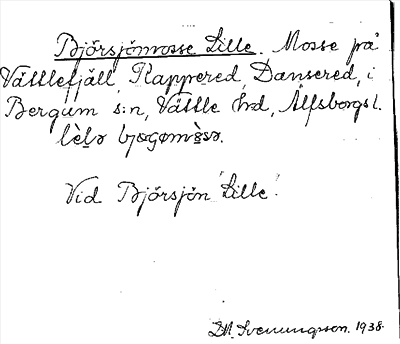 Björsjömosse Lille. Mosse på
Vättlefjäll, Rappered, Dansered, i
Bergum s:n, Vättle hd, Älfsborgs l.
lèlə bjøgømòsə.
Vid Björsjön 'Lille'.
D.M. Svenungsson. 1938.